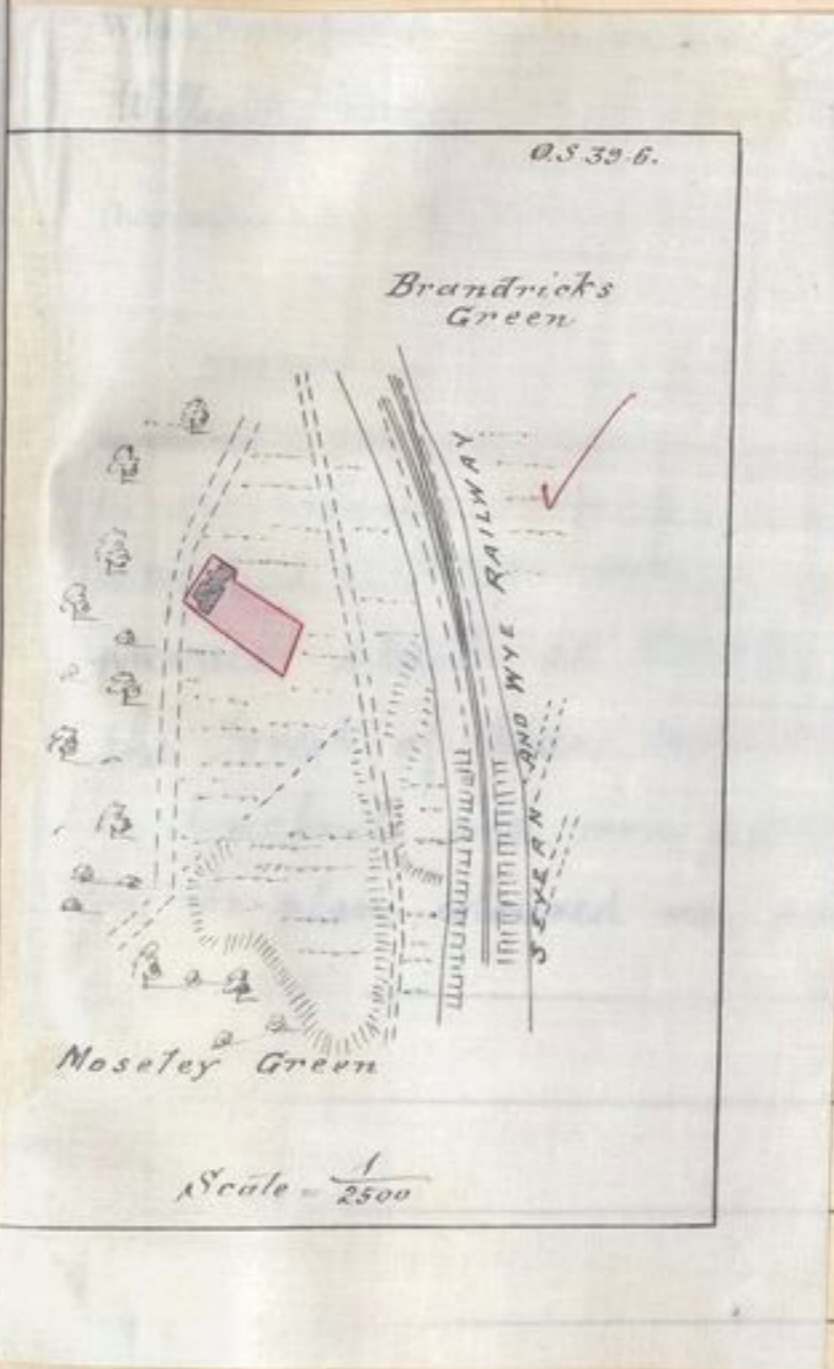 O.S. 39-6.
Brandricks
Green
SEVERN AND WYE RAILWAY
Moseley Green
Scale = 1/2500